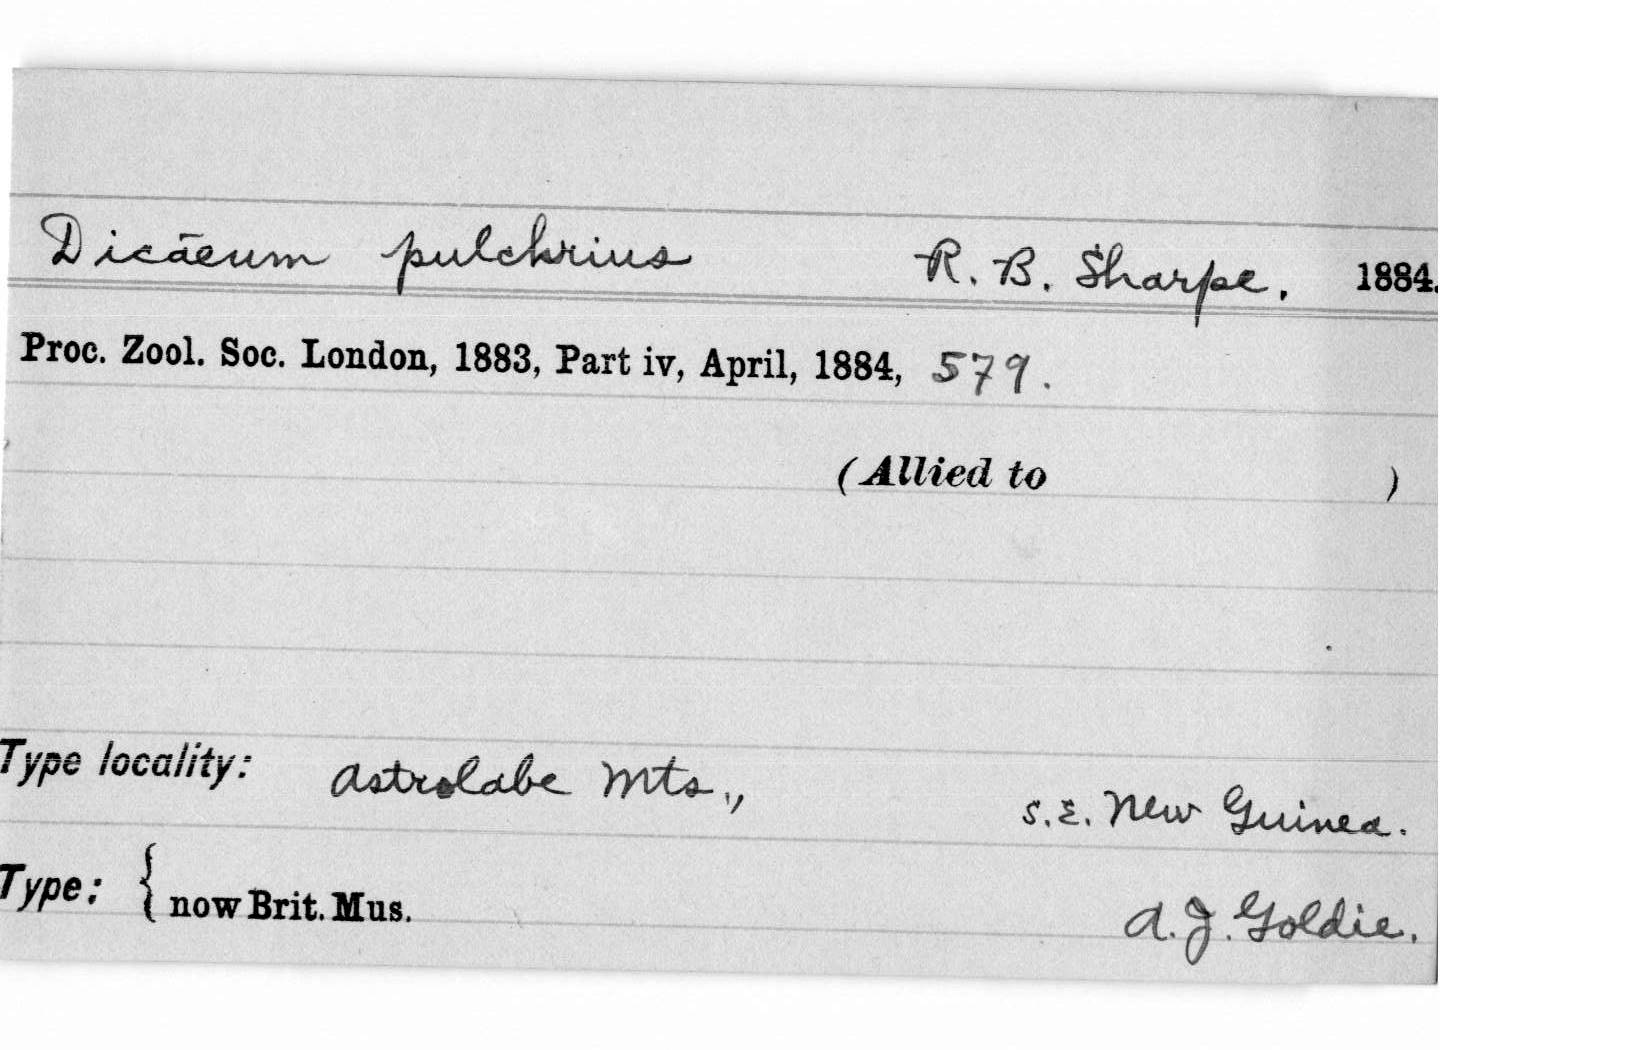 Dicāeum pulchrius R. B. Sharpe, 1884.
Proc. Zool. Soc. London, 1883, Part iv, April, 1884, 579.
(Allied to )
Type locality: Astrolabe Mts., S.E. New Guinea.
Type: { now Brit. Mus. A. J. Goldie.